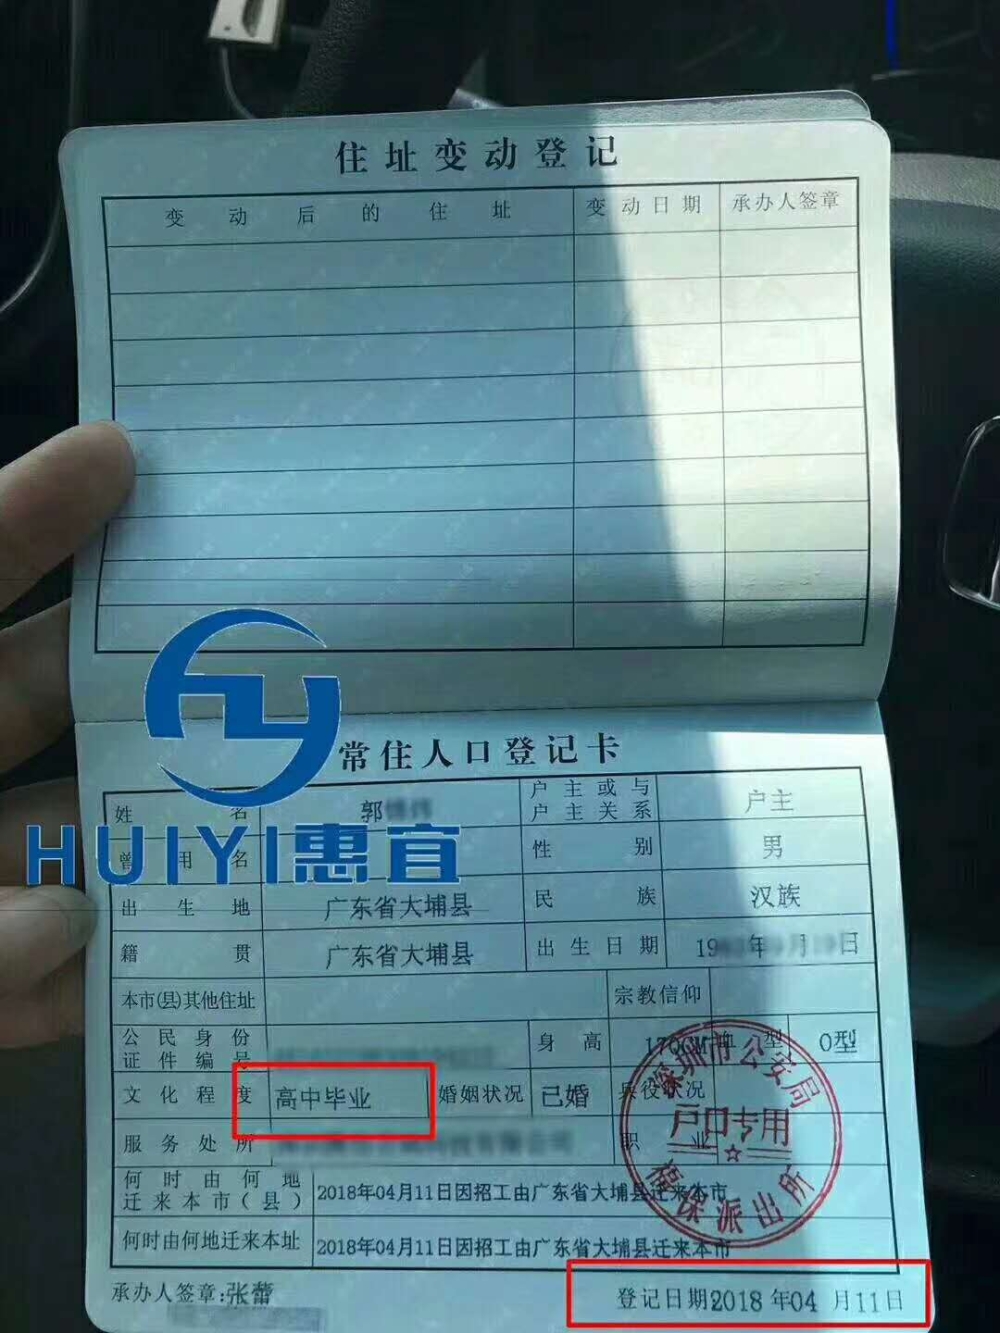 住址变动登记
变动后的住址 变动日期 承办人签章
常住人口登记卡
姓名 郭 户主或与户主关系 户主
HUIYI惠宜
曾用名 性别 男
出生地 广东省大埔县 民族 汉族
籍贯 广东省大埔县 出生日期 19 年 月 日
本市(县)其他住址 宗教信仰
公民身份证件编号 身高 170CM 血型 O型
文化程度 高中毕业 婚姻状况 已婚 兵役状况
服务处所 职业
何时由何地迁来本市(县) 2018年04月11日因招工由广东省大埔县迁来本市
何时由何地迁来本址 2018年04月11日因招工由广东省大埔县迁来本市
深圳市公安局
户口专用
福保派出所
承办人签章:张蕾 登记日期2018年04月11日